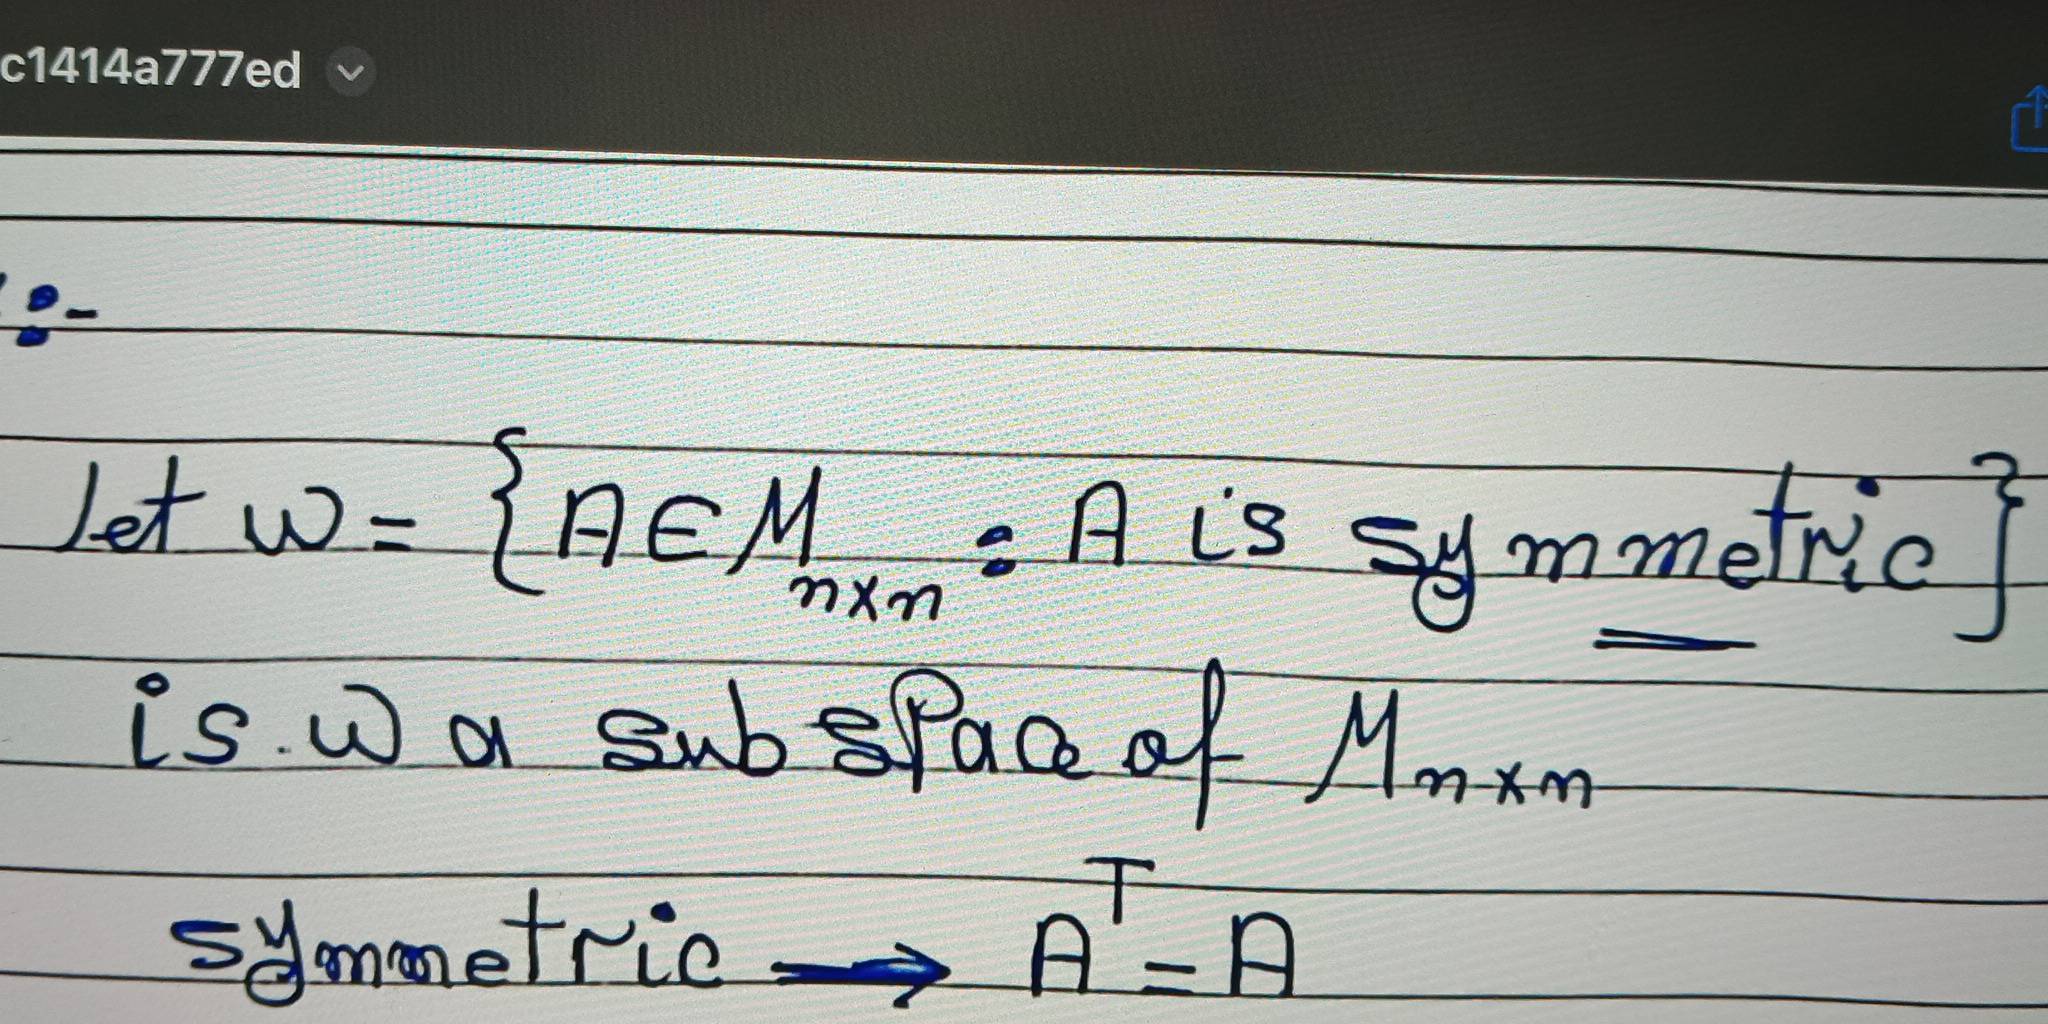 c1414a777ed
:-
Let W = {A ∈ M n×n : A is symmetric}
is W a subspace of M n×n
symmetric → A^T = A